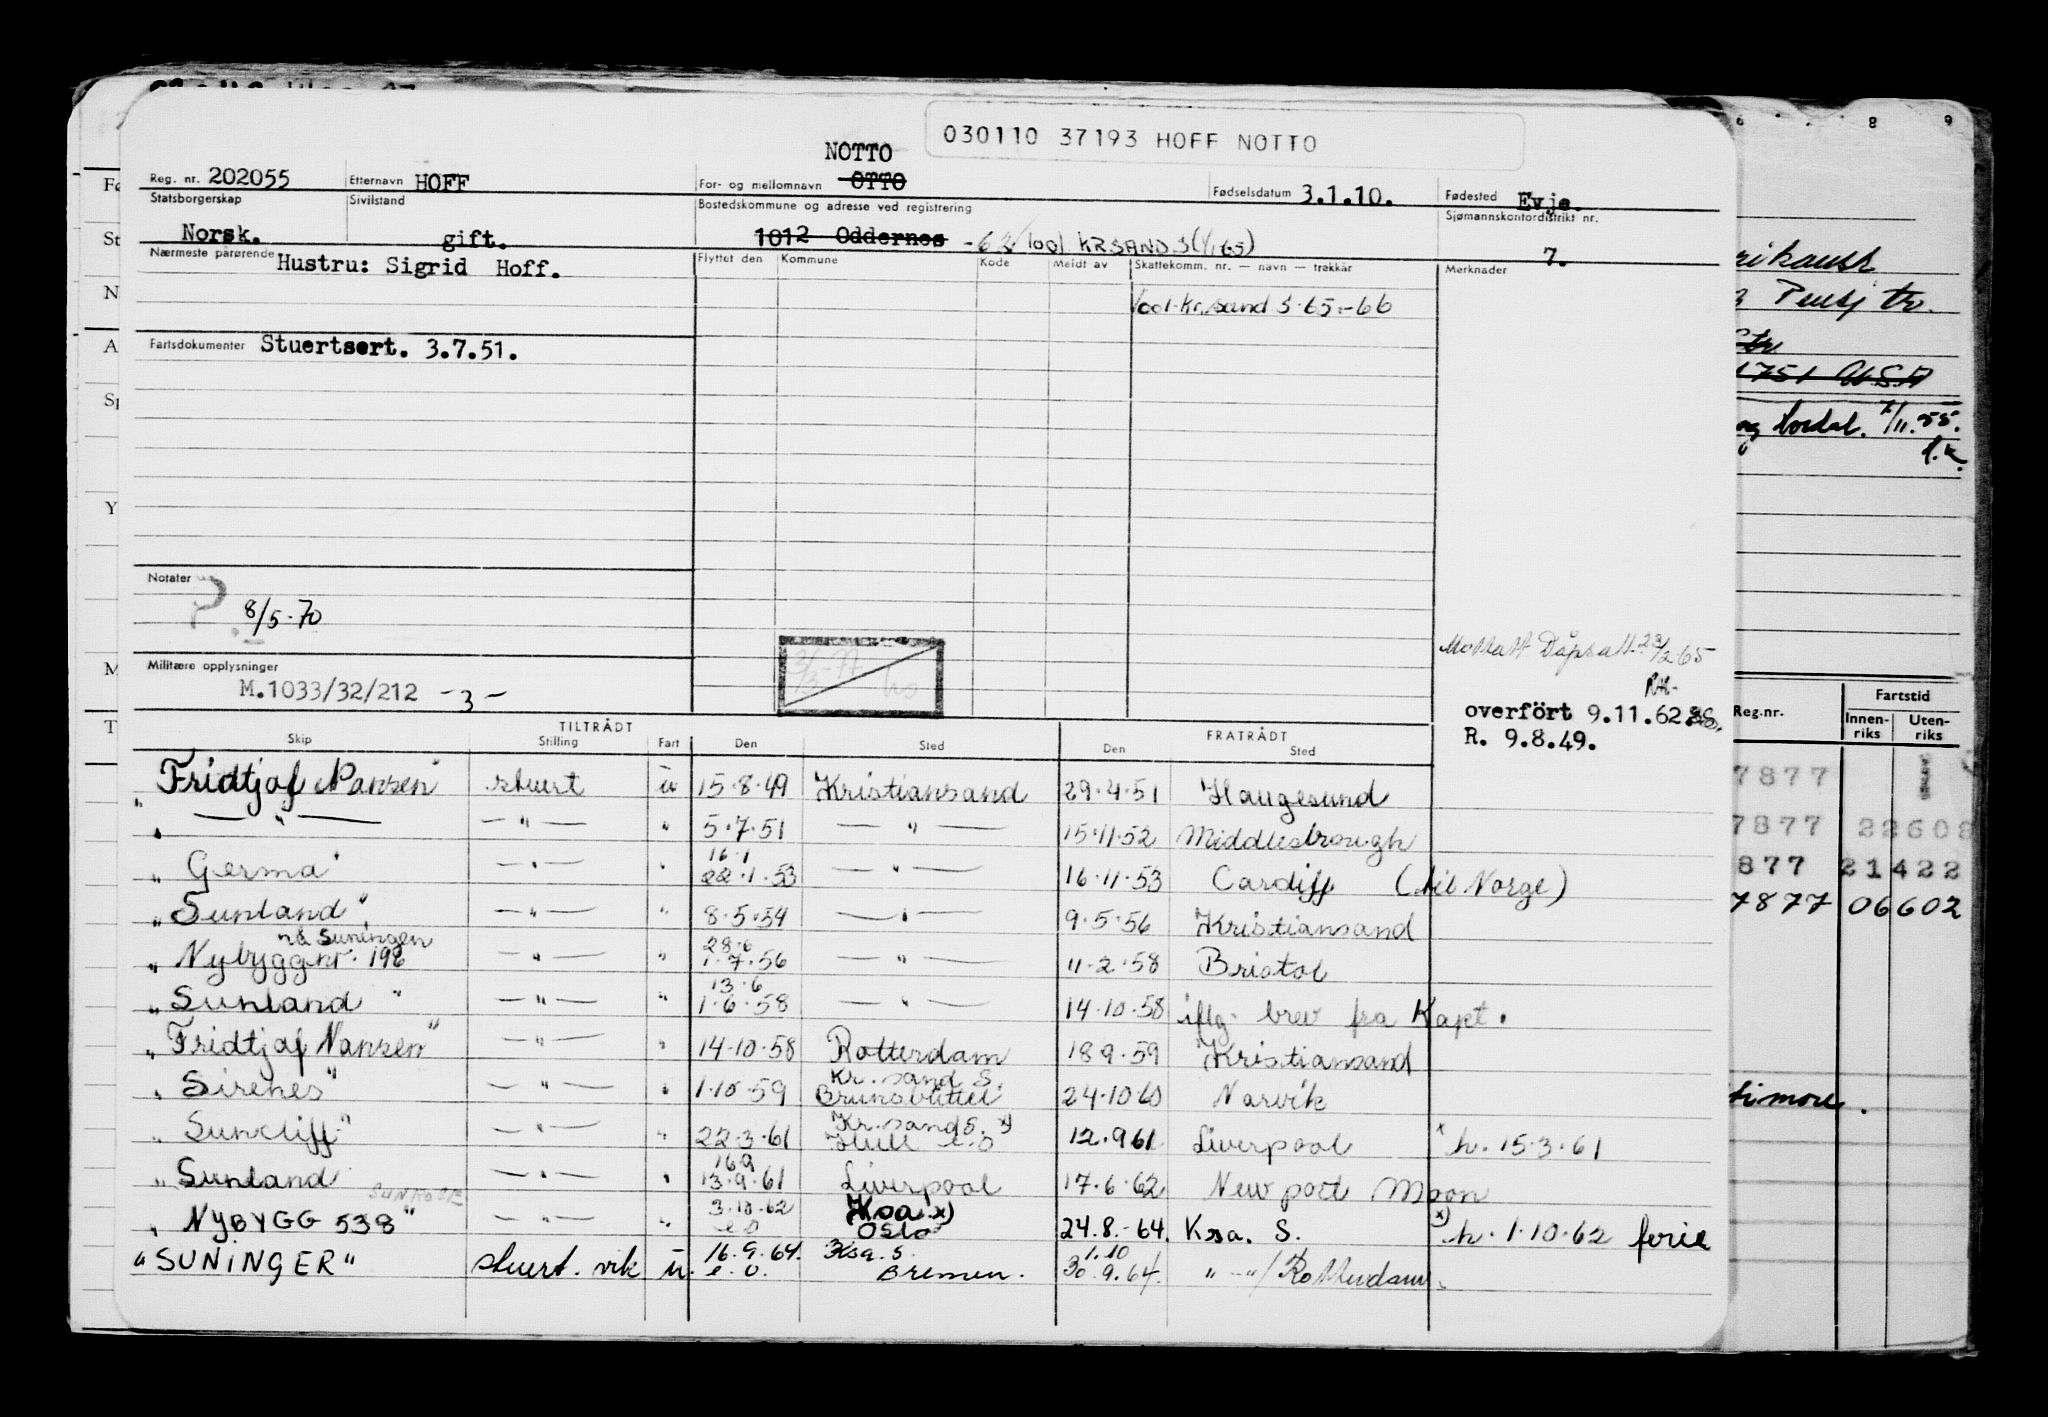 030110 37193 HOFF NOTTO
NOTTO
Reg. nr. 202055 Etternavn HOFF For- og mellomnavn OTTO Fødselsdatum 3.1.10. Fødested Evje.
Statsborgerskap Sivilstand Bostedskommune og adresse ved registrering Sjømannskontordistrikt nr.
Norsk. gift. 1012 Oddernes -63/1001 KRSAND S (1/1 65) 7.
Nærmeste pårørende Hustru: Sigrid Hoff. Flyttet den Kommune Kode Meldt av Skattekomm. nr. — navn — trekkår Merknader
1001 Kr.sand S 65-66
Fartsdokumenter Stuertsert. 3.7.51.
Notater
8/5-70
Militære opplysninger
M.1033/32/212 -3-
Mottatt Dåpsatt. 23/2 65
overført 9.11.62
R. 9.8.49.
TILTRÅDT FRATRÅDT
Skip Stilling Fart Den Sted Den Sted
"Fridtjof Nansen" stuert u 15.8.49 Kristiansand 29.4.51 Haugesund
" — " — — " — " 5.7.51 — " — 15.11.52 Middlesbrough
16.1
"Germa" — " — " 22.1.53 — " — 16.11.53 Cardiff (til Norge)
"Sunland" — " — " 8.5.54 — " — 9.5.56 Kristiansand
nå Suningen 28.6
"Nybyggnr. 196 — " — " 1.7.56 — " — 11.2.58 Bristol
13.6
"Sunland" — " — " 1.6.58 — " — 14.10.58 iflg. brev fra Kapt.
"Fridtjof Nansen" — " — " 14.10.58 Rotterdam 18.9.59 Kristiansand
Kr.sand S.
"Sirenes" — " — " 1.10.59 Brunsbüttel 24.10.60 Narvik
Kr.sand S. x)
"Suncliff" — " — " 22.3.61 Hull e.o 12.9.61 Liverpool x h. 15.3.61
16.9
"Sunland — " — " 13.9.61 Liverpool 17.6.62 Newport Moon
SUNROSE 3.10.62 Ksa x)
"NYBYGG 538" — " — " e.o Oslo 24.8.-64. Ksa. S. x) h. 1.10.62 ferie
16.9.64. Ksa. S. 1.10
"SUNINGER" stuert. vik u. e.o. Bremen. 30.9.64. " — "/Rotterdam.
6 8 9
Fø
St
N
A
Sp
Y
M
T
Pensj tr.
1751 U.S.A
7/11.55.
Reg.nr. Fartstid
Innen-riks Uten-riks
7877
7877 22602
877 21422
7877 06602
timore.